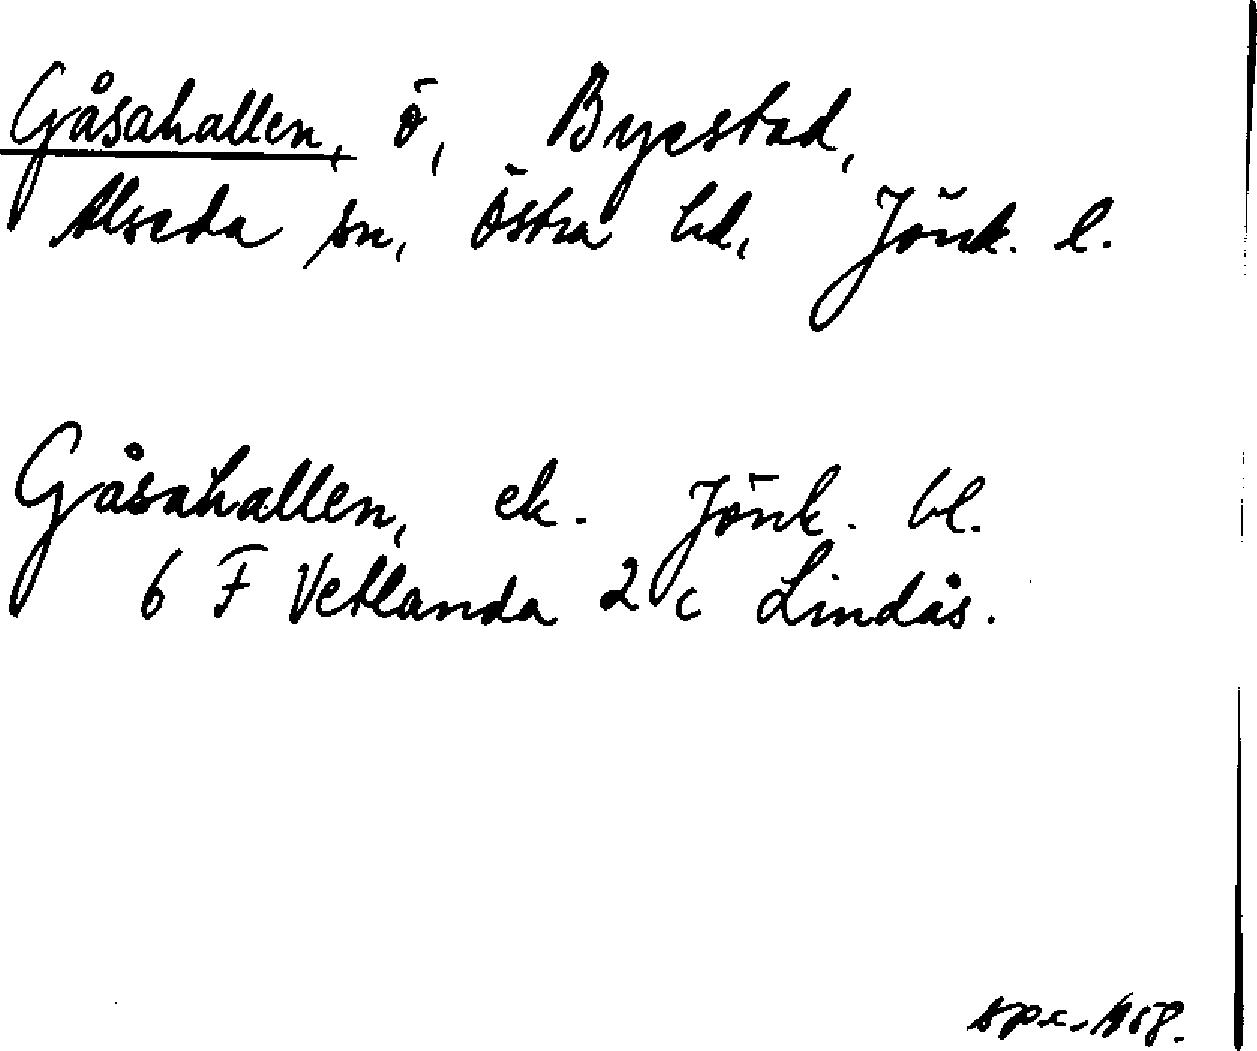 Gåsahallen, ö, Byestad,
Alseda sn, Östra hd, Jönk. l.
Gåsahallen, ek. Jönk. bl.
6 F Vetlanda 2 c Lindås.